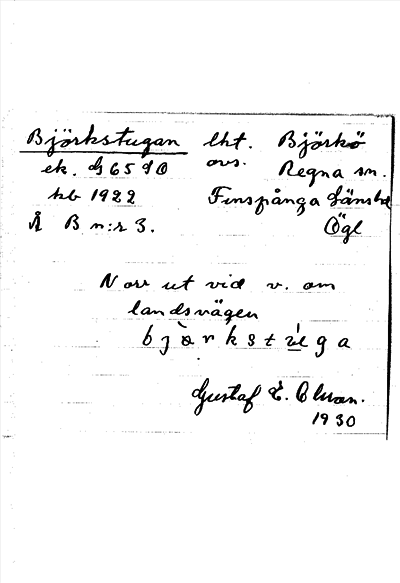 Björkstugan lht. Björkö
ek. G 6590 avs. Regna sn.
kb 1922 Finspånga länshd
Å B n:r 3. Ögl
Norr ut vid v. om
landsvägen
björkstuga
Gustaf E. Olsson.
1930